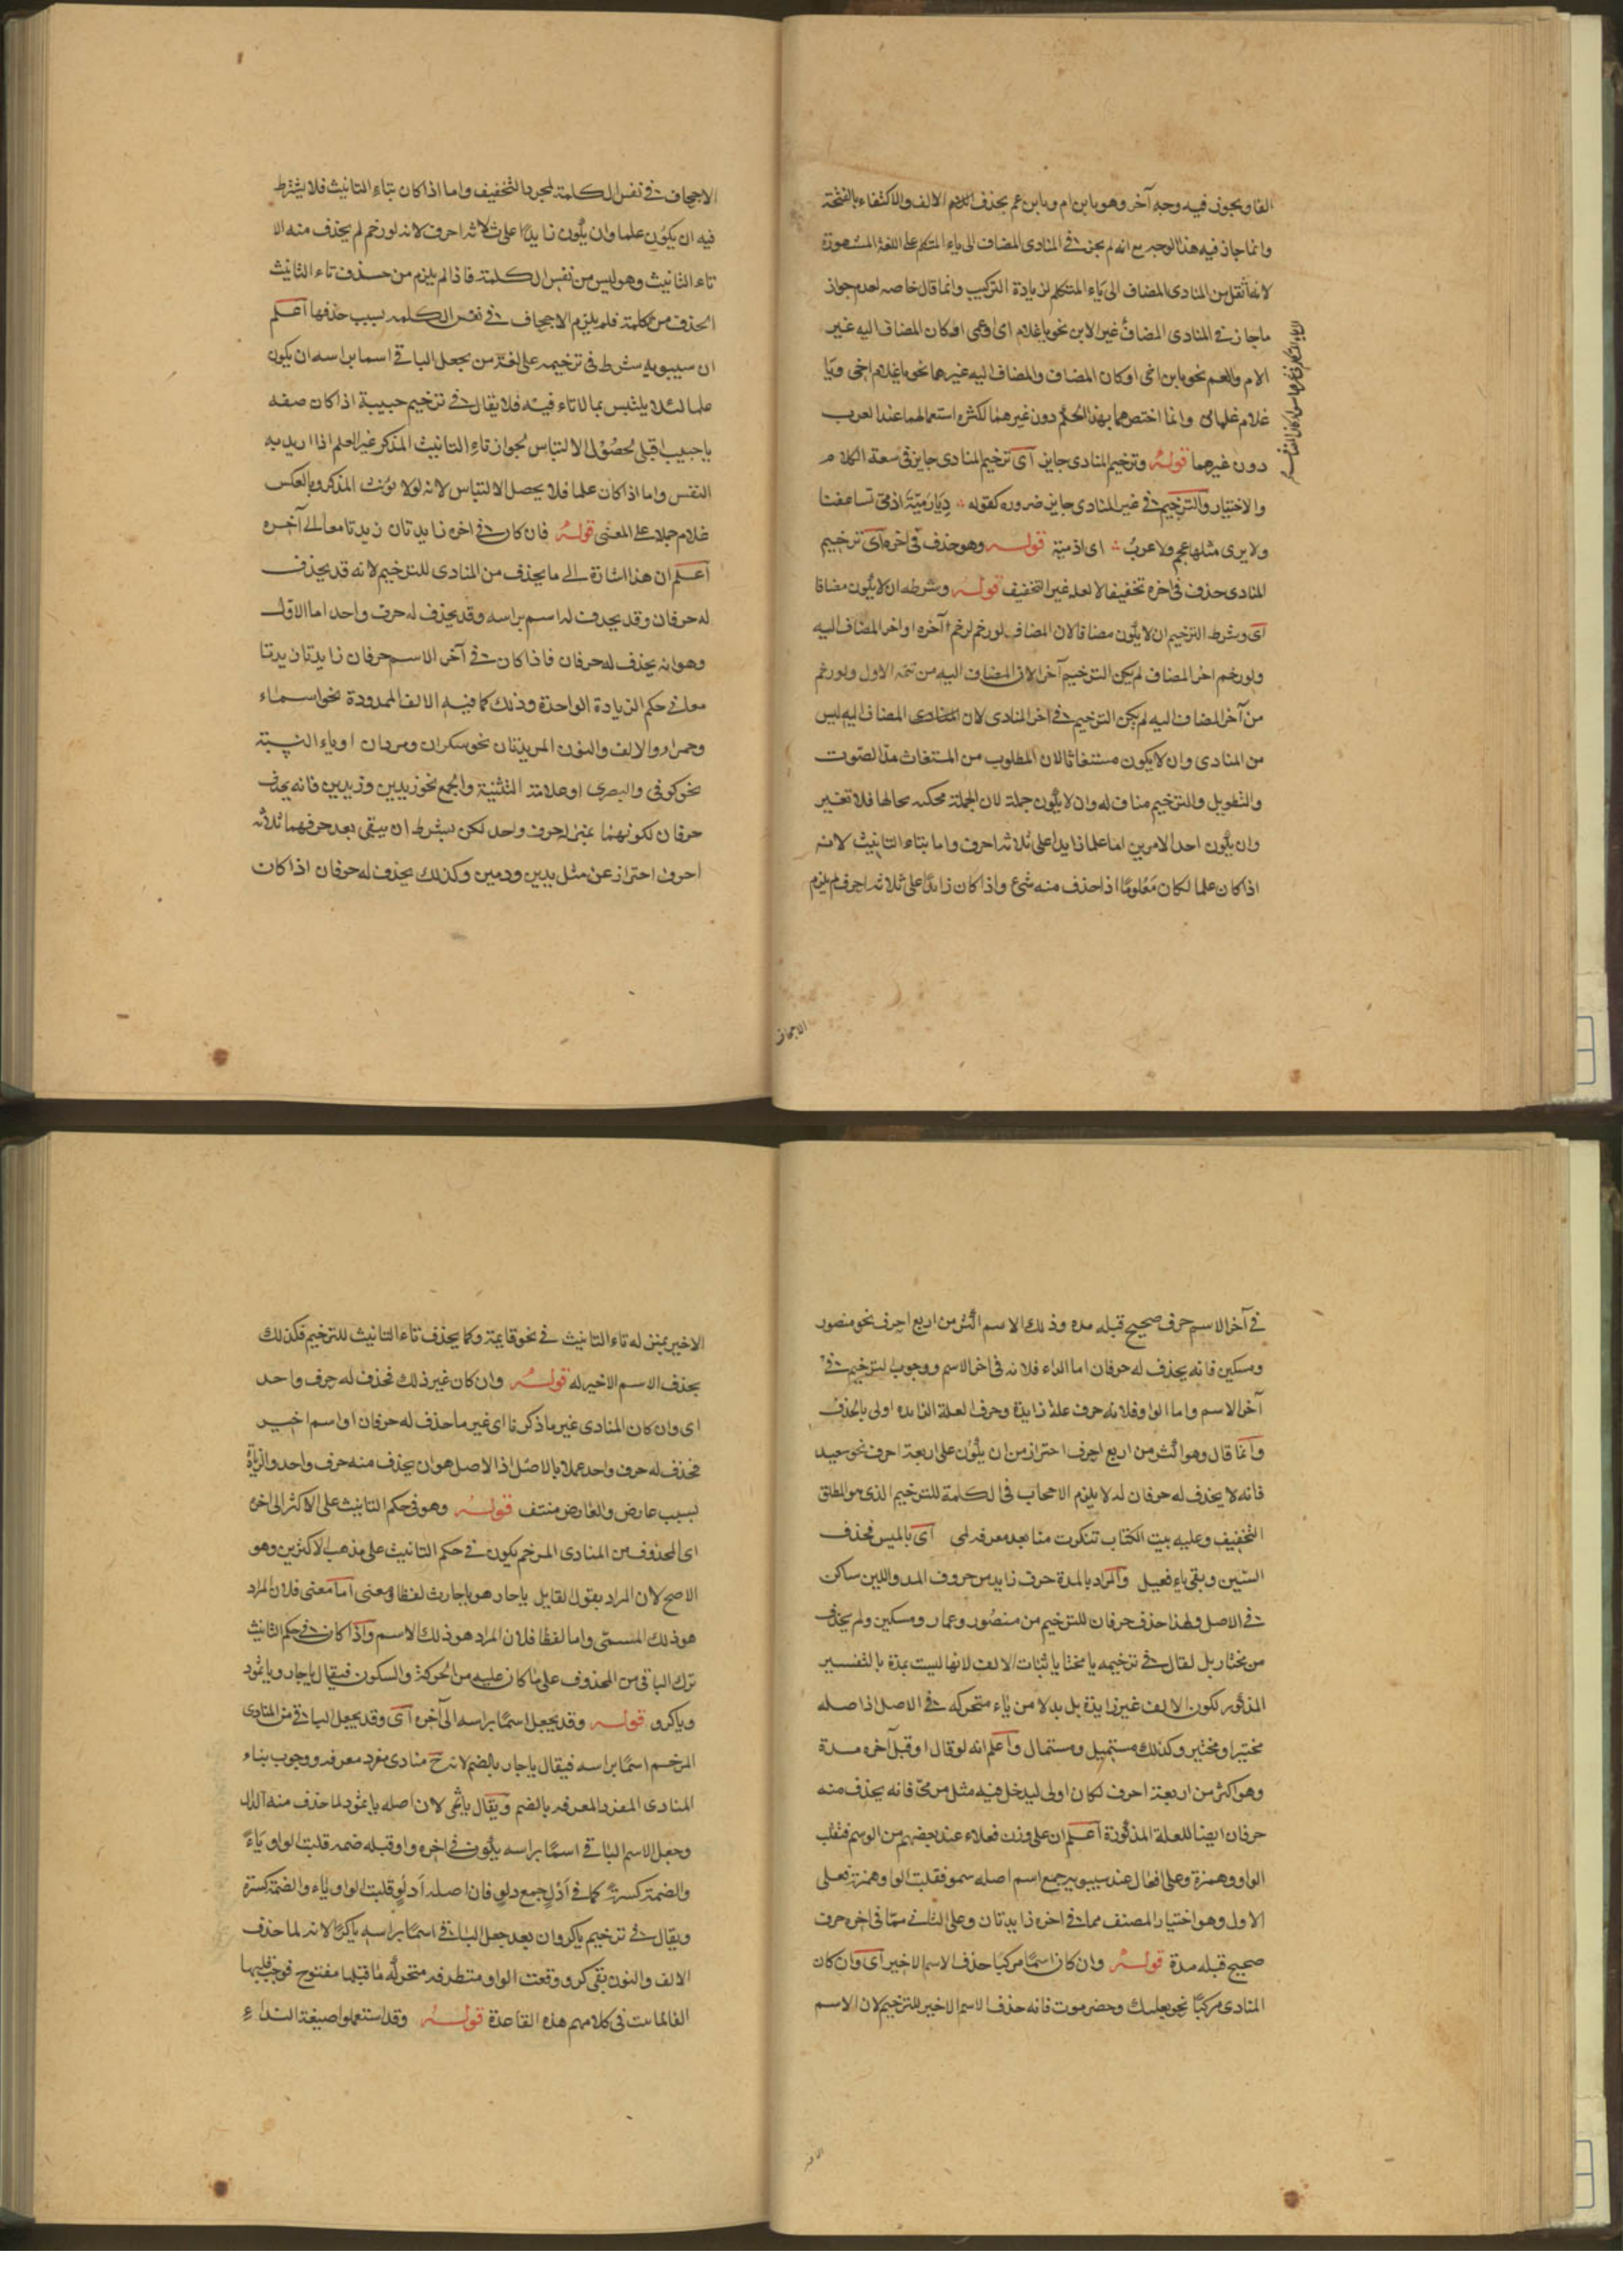 الفا ويجوز فيه وجه آخر وهو يا ابن ام ويا ابن عم بحذف الالف والاكتفاء بالفتحة
وانما جاز فيه هذا الوجه مع انه لم يجز في المنادى المضاف الى ياء المتكلم على اللغة المشهورة
لانه اثقل من المنادى المضاف الى ياء المتكلم لزيادة التركيب وانما قال خاصه لعدم جواز
ماجاز في المنادى المضاف غير الابن نحو يا غلام امي او عمى او كان المضاف اليه غير
الام والعم نحو يا ابن اخى او كان المضاف والمضاف اليه غيرهما نحو يا غلام اخى ويا
غلام غلامى وانما اختص هما بهذا الحكم دون غيرهما لكثرة استعمالهما عند العرب
دون غيرهما قوله وترخيم المنادى جايز آى ترخيم المنادى جايز فى سعة الكلام
والاختيار والترخيم في غير المنادى جايز ضروره كقوله دِيَارَ مَيَّةَ اذ مىّ تساعفنا
ولا يرى مثلها عجم ولا عربُ اى اذ مية قوله وهو حذف فى اخره آى ترخيم
المنادى حذف فى اخره تخفيفا لا لعلة غير التخفيف قوله وشرطه ان لا يكون مضافا
آى وشرط الترخيم ان لا يكون مضافا لان المضاف لو رخم لرخم آخره او اخر المضاف اليه
ولو رخم اخر المضاف لم يكن الترخيم آخرا لان المضاف اليه من تتمه الاول ولو رخم
من آخر المضاف اليه لم يكن الترخيم في اخر المنادى لان المضاف اليه ليس
من المنادى وان لا يكون مستغاثا لان المطلوب من المستغاث مدّ الصوت
والتطويل والترخيم مناف له وان لا يكون جملة لان الجملة محكيه بحالها فلا تغير
وان يكون احد الامرين اما علما زايدا على ثلاثه احرف واما بتاء التانيث لانه
اذا كان علما لكان مَعْلومًا اذا حذف منه شئ واذا كان زايدًا على ثلاثه احرف لم يلزم
الاجحاف
الاجحاف في نفس الكلمة لمجرد التخفيف واما اذا كان بتاء التانيث فلا يشترط
فيه ان يكون علما وان يكون زايدًا على ثلاثه احرف لانه لو رخم لم يحذف منه الا
تاء التانيث وهو ليس من نفس الكلمة فاذا لم يلزم من حذف تاء التانيث
الحذف من كلمة فلم يلزم الاجحاف في نفس الكلمه بسبب حذفها آعلم
ان سيبويه شرط فى ترخيمه على لغة من يجعل الباقى اسما براسه ان يكون
علما لئلا يلتبس بما لا تاء فيه فلا يقال في ترخيم حبيبة اذا كان صفه
يا حبيب اقبلى لحصول الالتباس لجواز تاء التانيث المذكر غير العلم اذا اريد به
النفس واما اذا كان علما فلا يحصل الالتباس لانه لولا يؤنث المذكر وبالعكس
غلام حملا على المعنى قوله فان كان في اخره زايدتان زيدتا معا الى آخره
آعلم ان هذا اشارة الى ما يحذف من المنادى للترخيم لانه قد يحذف
له حرفان وقد يحدف له اسم براسه وقد يحذف له حرف واحد اما الاول
وهو انه يحذف له حرفان فاذا كان في آخر الاسم حرفان زايدتان زيدتا
معا في حكم الزيادة الواحدة وذلك كما فيه الالف الممدودة نحو اسماء
وحمراء او الالف والنون المزيدتان نحو سكران ومروان او ياء النسبة
نحو كوفى والبصرى او علامة التثنية والجمع نحو زيدين وزيدين فانه يحذف
حرفان لكونهما بمنزلة حرف واحد لكن بشرط ان يبقى بعد حرفهما ثلاثه
احرف احتراز عن مثل يدين ودمين وكذلك يحذف له حرفان اذا كان
في آخر الاسم حرف صحيح قبله مده وذلك الاسم اكثر من اربع احرف نحو منصور
ومسكين فانه يحذف له حرفان اما الراء فلانه فى اخر الاسم ووجوب الترخيم في
آخر الاسم واما الواو فلانه حرف علة زايدة وحرف العلة الزايده اولى بالحذف
وآنما قال وهو اكثر من اربع احرف احتراز من ان يكون على اربعة احرف نحو سعيد
فانه لا يحذف له حرفان لئلا يلزم الاجحاف فى الكلمة للترخيم الذى هو المطلق
التخفيف وعليه بيت الكتاب تنكرت منا بعد معرفه لمى آى يا لميس فحذف
السّين وبقى ياء فعيل وآلمراد بالمدة حرف زايد من حروف المد واللين ساكن
في الاصل ولهذا حذف حرفان للترخيم من منصُور وعمار ومسكين ولم يحذف
من مختار بل لقال في ترخيمه يا مختا باثبات الالف لانها ليست بمدة بالتفسير
المذكور لكون الالف غير زايدة بل بدلا من ياء متحركه في الاصل اذ اصله
مختيِر او مختيَر وكذلك مستميل ومستمال وآعلم انه لو قال او قبل آخره مدة
وهو اكثر من اربعة احرف لكان اولى ليدخل فيه مثل مرمىّ فانه يحذف منه
حرفان ايضا للعلة المذكورة آعلم ان على وزن فعلاء عند بعضهم من الوسم فقلب
الواو همزة وعلى افعال عند سيبويه جمع اسم اصله سمو فقلبت الواو همزة فعلى
الاول وهو اختيار المصنف مما في اخره زايدتان وعلى الثانى ممّا فى اخره حرف
صحيح قبله مدة قوله وان كان اسمًا مركبا حذف الاسم الاخير آى وان كان
المنادى مركبًا نحو بعلبك وحضرموت فانه حذف الاسم الاخير للترخيم لان الاسم
الاخير بمنزله تاء التانيث في نحو قايمة وكما يحذف تاء التانيث للترخيم فكذلك
يحذف الاسم الاخير له قوله وان كان غير ذلك فحذف له حرف واحد
اى وان كان المنادى غير ما ذكرنا اى غير ما حذف له حرفان او اسم اخير
فحذف له حرف واحد عملا بالاصل اذ الاصل هو ان يحذف منه حرف واحد والزيادة
بسبب عارض والعارض منتف قوله وهو فى حكم الثابت على الاكثر الى اخره
اى المحذوف من المنادى المرخم يكون في حكم الثابت على مذهب الاكثرين وهو
الاصح لان المراد بقول القايل يا حار هو يا حارث لفظا ومعنى آما معنى فلان المراد
هو ذلك المسمّى واما لفظا فلان المراد هو ذلك الاسم وآذا كان في حكم الثابت
ترك الباقى من المحذوف على ما كان عليه من الحركة والسكون فيقال يا حار ويا ثمو
ويا كرو قوله وقد يجعل اسمًا براسه الى آخره آى وقد يجعل الباقى من المنادى
المرخم اسمًا براسه فيقال يا حار بالضم لانه ح منادى مفرد معرفه ووجوب بناء
المنادى المفرد المعرفه بالضم ويقال يا ثمى لان اصله يا ثمود لما حذف منه الدال
وجعل الاسم الباقى اسمًا براسه يكون في اخره واو قبله ضمه قلبت الواو ياءً
والضمة كسرة كما في اَدْلٍ جمع دلو فان اصله اَدلُوٌ قلبت الواو ياء والضمة كسرة
ويقال في ترخيم يا كروان بعد جعل الباقى اسمًا براسه يا كرَا لانه لما حذف
الالف والنون بقى كرو وقعت الواو متطرفه متحركه ما قبلها مفتوح فوجب قلبها
الفا لما ثبت فى كلامهم هذه القاعدة قوله وقد استعملوا صيغة النداء